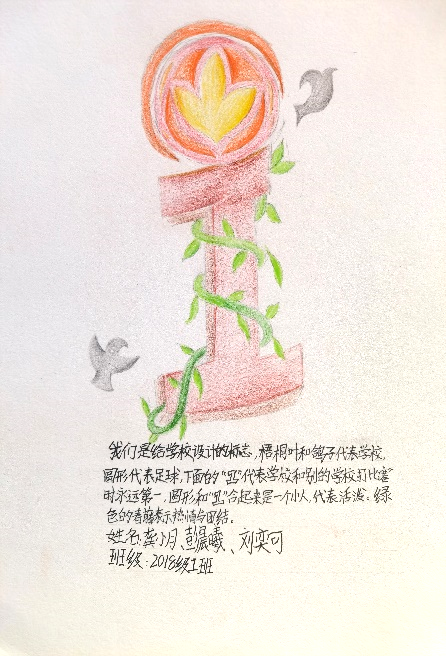 我们是给学校设计的标志,梧桐叶和鸽子代表学校,
圆形代表足球,下面的“卫”代表学校和别的学校打比赛
时永远第一,圆形和“卫”合起来是一个小人,代表活泼。绿
色的青藤表示热情与团结。
姓名:龚月、彭晨曦、刘奕可
班级:2018级1班